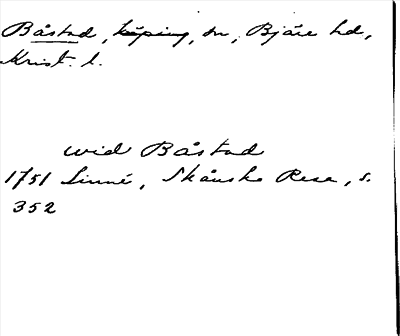 Båstad, köping, sn, Bjäre hd,
Krist. l.
wid Båstad
1751 Linné, Skånska Resa, s.
352